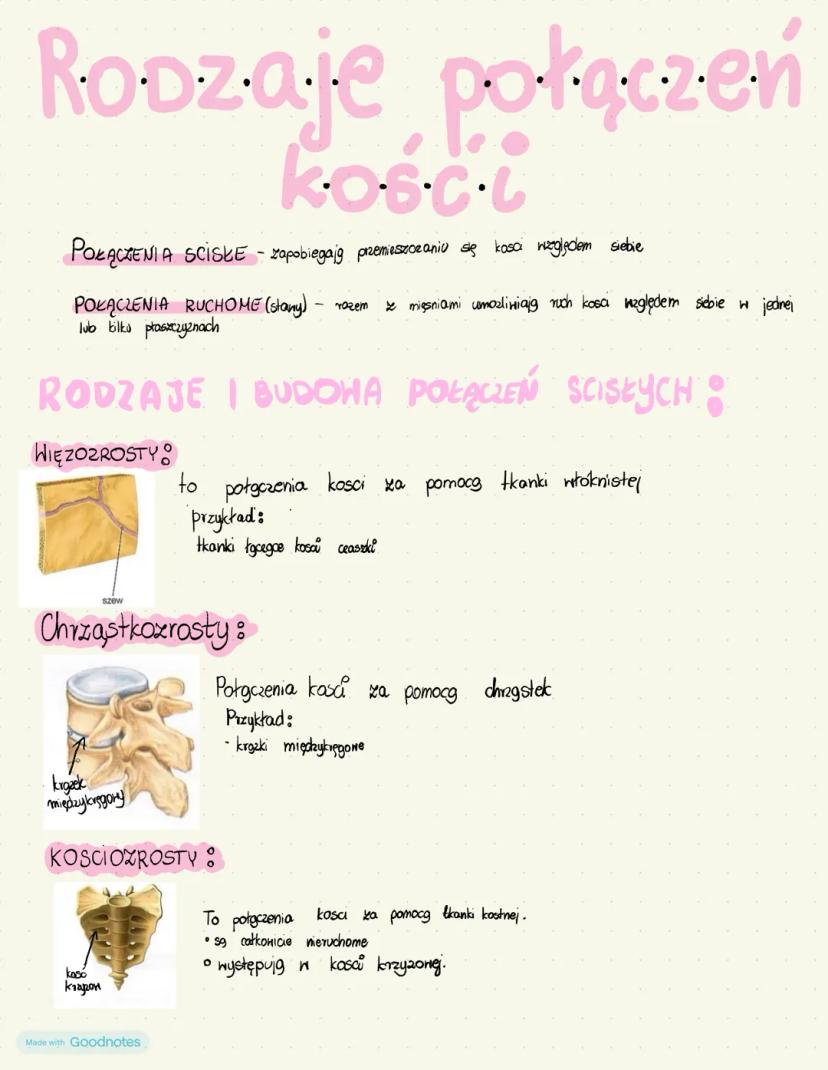 Rodzaje połączeń
kości
POŁĄCZENIA SCISŁE - zapobiegają przemieszczaniu się kosci względem siebie
POŁĄCZENIA RUCHOME (stawy) - razem z mięsniami umozliwiają ruch kosci względem siebie w jednej
lub kilku płaszczyznach
RODZAJE I BUDOWA POŁĄCZEŃ SCISŁYCH:
WIĘZOZROSTY:
to połączenia kosci za pomocą tkanki włóknistej
przykład:
tkanki łączące kości czaszki
szew
Chrząstkozrosty:
Połączenia kości za pomocą chrząstek
Przykład:
- krązki międzykręgowe
krązek
międzykręgowy
KOSCIOZROSTY:
To połączenia kosci za pomocą tkanki kostnej.
• są całkowicie nieruchome
• występują w kości krzyzowej.
kość
krzyzowa
Made with Goodnotes